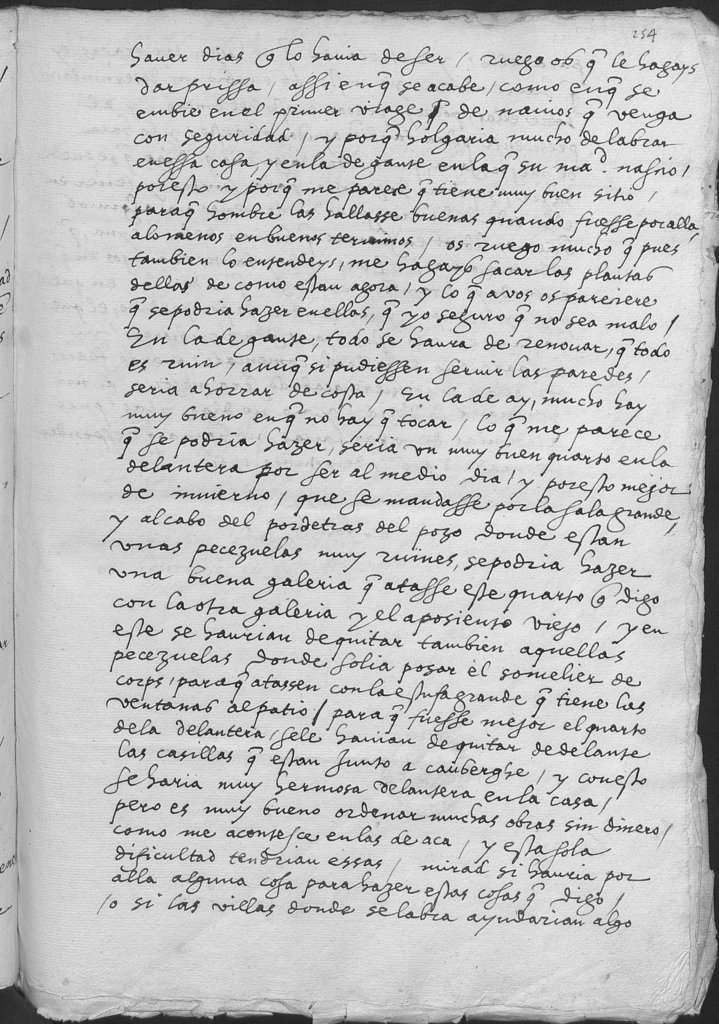 254
haver dias q̃ lo havia de ser / ruego os q̃ le hagays
dar prissa / assi en q̃ se acabe / como en q̃ se
embie en el primer viage de navios q̃ venga
con seguridad / y porq̃ holgaria mucho de labrar
en essa casa y en la de gante en la q̃ su ma.d nasçio /
por esto y porq̃ me parece q̃ tiene muy buen sitio /
para q̃ hombre las hallasse buenas quando fuesse por alla,
alo menos en buenos terminos / os ruego mucho q̃ pues
tambien lo entendeys, me hagays sacar las plantas
dellas de como estan agora / y lo q̃ a vos os pareciere
q̃ se podria hazer en ellas, q̃ yo seguro q̃ no sea malo /
En la de gante, todo se havra de renovar, q̃ todo
es ruin / aunq̃ si pudiessen servir las paredes /
seria ahorrar de costa / En la de ay, mucho hay
muy bueno en q̃ no hay q̃ tocar / lo q̃ me parece
q̃ se podria hazer, seria un muy buen quarto en la
delantera por ser al medio dia / y por esto mejor
de invierno / que se mandasse por la sala grande,
y al cabo del por detras del pozo donde estan
unas pecezuelas muy ruines, se podria hazer
una buena galeria q̃ atasse este quarto q̃ digo
con la otra galeria y el aposiento viejo / y en
este se havrian de quitar tambien aquellas
pecezuelas donde solia posar el somelier de
corps / para q̃ atassen con la estufa grande q̃ tiene las
ventanas al patio / para q̃ fuesse mejor el quarto
dela delantera, se le havian de quitar de delante
las casillas q̃ estan junto a cauberghe / y con esto
se haria muy hermosa delantera en la casa /
pero es muy bueno ordenar muchas obras sin dinero /
como me acontesce en las de aca / y esta sola
dificultad tendrian essas / mirad si havria por
alla alguna cosa para hazer estas cosas q̃ digo /
/o si las villas donde se labra ayudarian algo